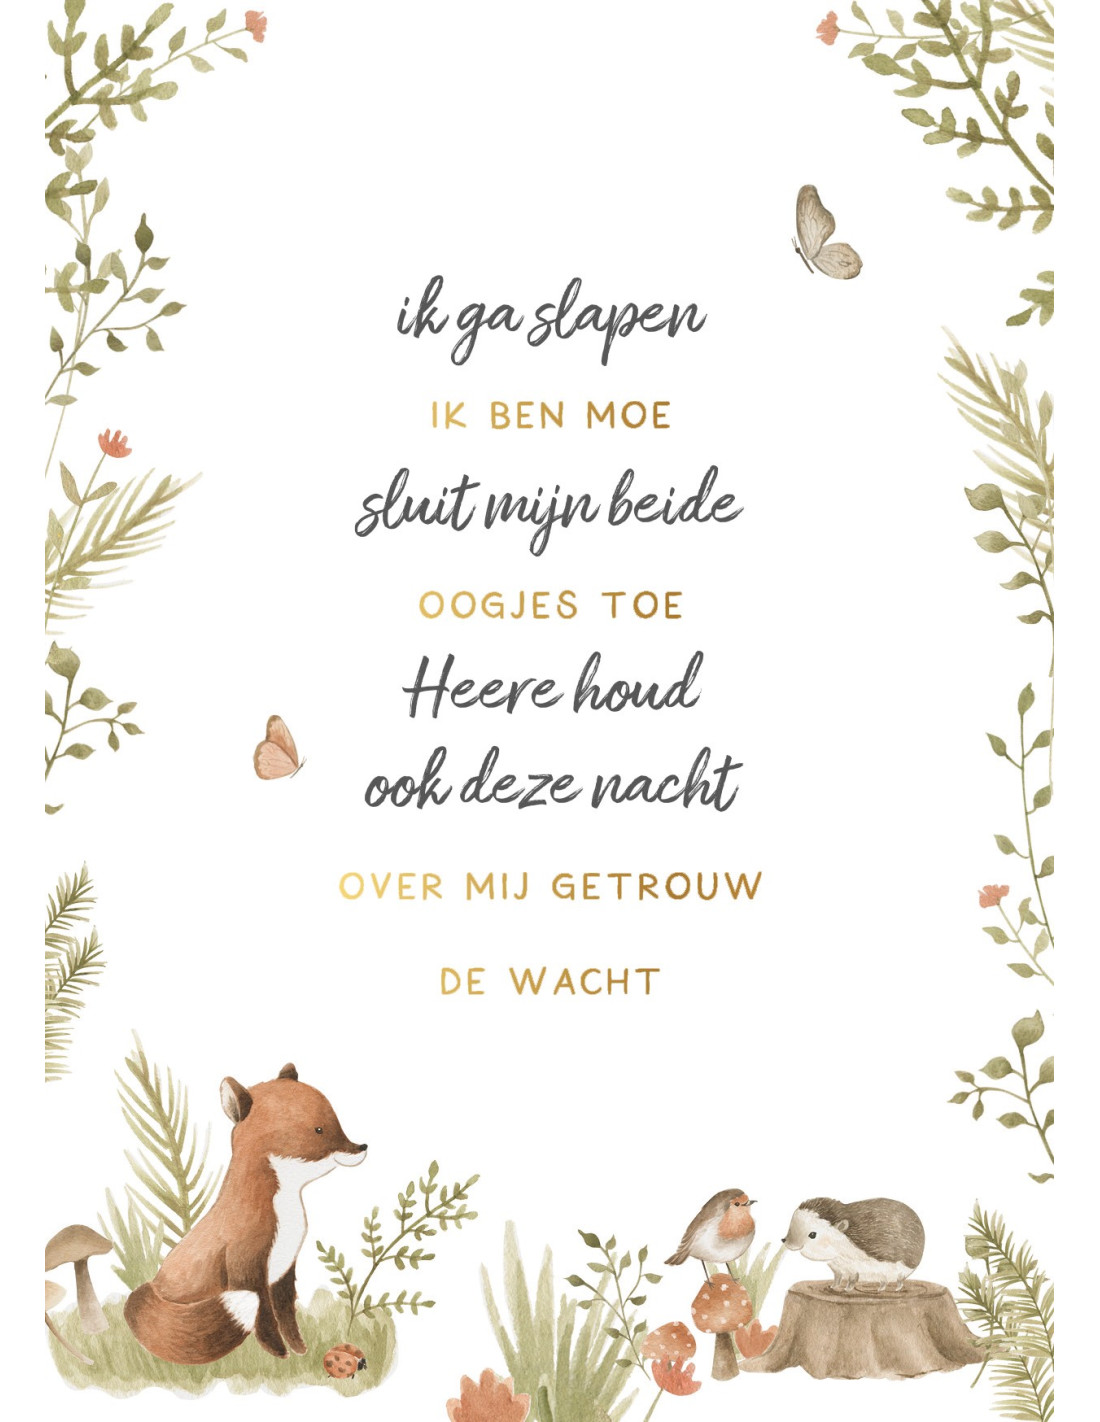 ik ga slapen
IK BEN MOE
sluit mijn beide
OOGJES TOE
Heere houd
ook deze nacht
OVER MIJ GETROUW
DE WACHT